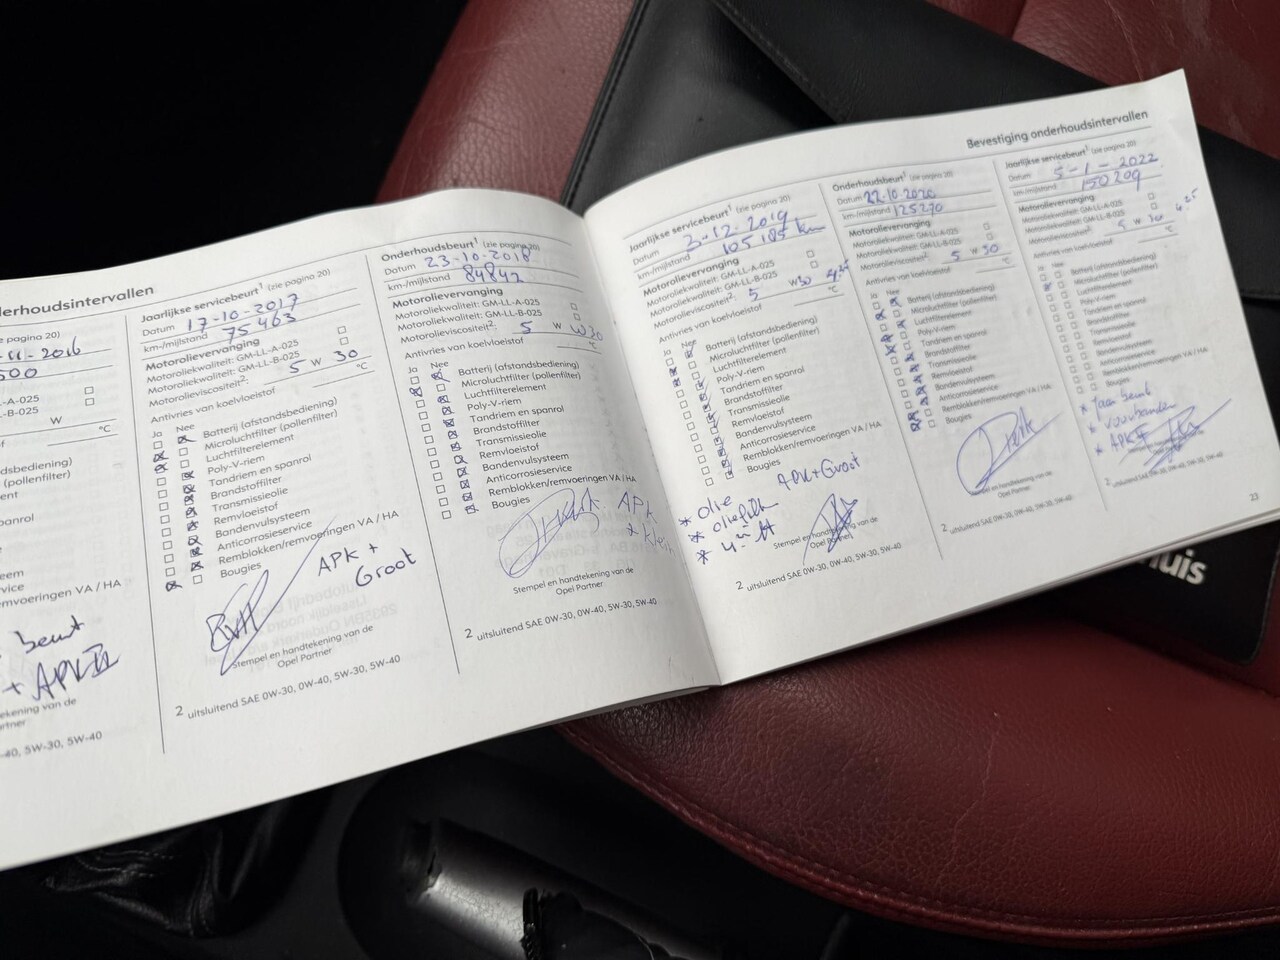 derhoudsintervallen
e pagina 20)
-11-2016
500
-A-025
-B-025
W
°C
dsbediening)
(pollenfilter)
ment
spanrol
eem
vice
emvoeringen VA / HA
beurt
+ APK
ekening van de
artner
-40, 5W-30, 5W-40
Jaarlijkse servicebeurt¹ (zie pagina 20)
Datum 17-10-2017
km-/mijlstand 75463
Motorolievervanging
Motoroliekwaliteit: GM-LL-A-025
Motoroliekwaliteit: GM-LL-B-025
Motorolieviscositeit²: 5 W 30
Antivries van koelvloeistof °C
Ja Nee
Batterij (afstandsbediening)
Microluchtfilter (pollenfilter)
Luchtfilterelement
Poly-V-riem
Tandriem en spanrol
Brandstoffilter
Transmissieolie
Remvloeistof
Bandenvulsysteem
Anticorrosieservice
Remblokken/remvoeringen VA / HA
Bougies
APK +
Groot
Stempel en handtekening van de
Opel Partner
2 uitsluitend SAE 0W-30, 0W-40, 5W-30, 5W-40
Onderhoudsbeurt¹ (zie pagina 20)
Datum 23-10-2018
km-/mijlstand 84842
Motorolievervanging
Motoroliekwaliteit: GM-LL-A-025
Motoroliekwaliteit: GM-LL-B-025
Motorolieviscositeit²: 5 W W30
Antivries van koelvloeistof °C
Ja Nee
Batterij (afstandsbediening)
Microluchtfilter (pollenfilter)
Luchtfilterelement
Poly-V-riem
Tandriem en spanrol
Brandstoffilter
Transmissieolie
Remvloeistof
Bandenvulsysteem
Anticorrosieservice
Remblokken/remvoeringen VA / HA
Bougies
APK
& klein
Stempel en handtekening van de
Opel Partner
2 uitsluitend SAE 0W-30, 0W-40, 5W-30, 5W-40
Bevestiging onderhoudsintervallen
Jaarlijkse servicebeurt¹ (zie pagina 20)
Datum 3-12-2019
km-/mijlstand 105185 km
Motorolievervanging
Motoroliekwaliteit: GM-LL-A-025
Motoroliekwaliteit: GM-LL-B-025
Motorolieviscositeit²: 5 W30
Antivries van koelvloeistof °C
Ja Nee
Batterij (afstandsbediening)
Microluchtfilter (pollenfilter)
Luchtfilterelement
Poly-V-riem
Tandriem en spanrol
Brandstoffilter
Transmissieolie
Remvloeistof
Bandenvulsysteem
Anticorrosieservice
Remblokken/remvoeringen VA / HA
Bougies
APK+Groot
* olie
* oliefilt
Stempel en handtekening van de
Opel Partner
2 uitsluitend SAE 0W-30, 0W-40, 5W-30, 5W-40
Onderhoudsbeurt¹ (zie pagina 20)
Datum 22-10-2020
km-/mijlstand 125270
Motorolievervanging
Motoroliekwaliteit: GM-LL-A-025
Motoroliekwaliteit: GM-LL-B-025
Motorolieviscositeit²: 5 W 30
Antivries van koelvloeistof °C
Ja Nee
Batterij (afstandsbediening)
Microluchtfilter (pollenfilter)
Luchtfilterelement
Poly-V-riem
Tandriem en spanrol
Brandstoffilter
Transmissieolie
Remvloeistof
Bandenvulsysteem
Anticorrosieservice
Remblokken/remvoeringen VA / HA
Bougies
Stempel en handtekening van de
Opel Partner
2 uitsluitend SAE 0W-30, 0W-40, 5W-30, 5W-40
Jaarlijkse servicebeurt¹ (zie pagina 20)
Datum 5-1-2022
km-/mijlstand 150209
Motorolievervanging
Motoroliekwaliteit: GM-LL-A-025
Motoroliekwaliteit: GM-LL-B-025
Motorolieviscositeit²: 5 W 30 4.25
Antivries van koelvloeistof °C
Ja Nee
Batterij (afstandsbediening)
Microluchtfilter (pollenfilter)
Luchtfilterelement
Poly-V-riem
Tandriem en spanrol
Brandstoffilter
Transmissieolie
Remvloeistof
Bandenvulsysteem
Anticorrosieservice
Remblokken/remvoeringen VA / HA
Bougies
* beurt
* voorbanden
* APK
2 uitsluitend SAE 0W-30, 0W-40, 5W-30, 5W-40
23
huis